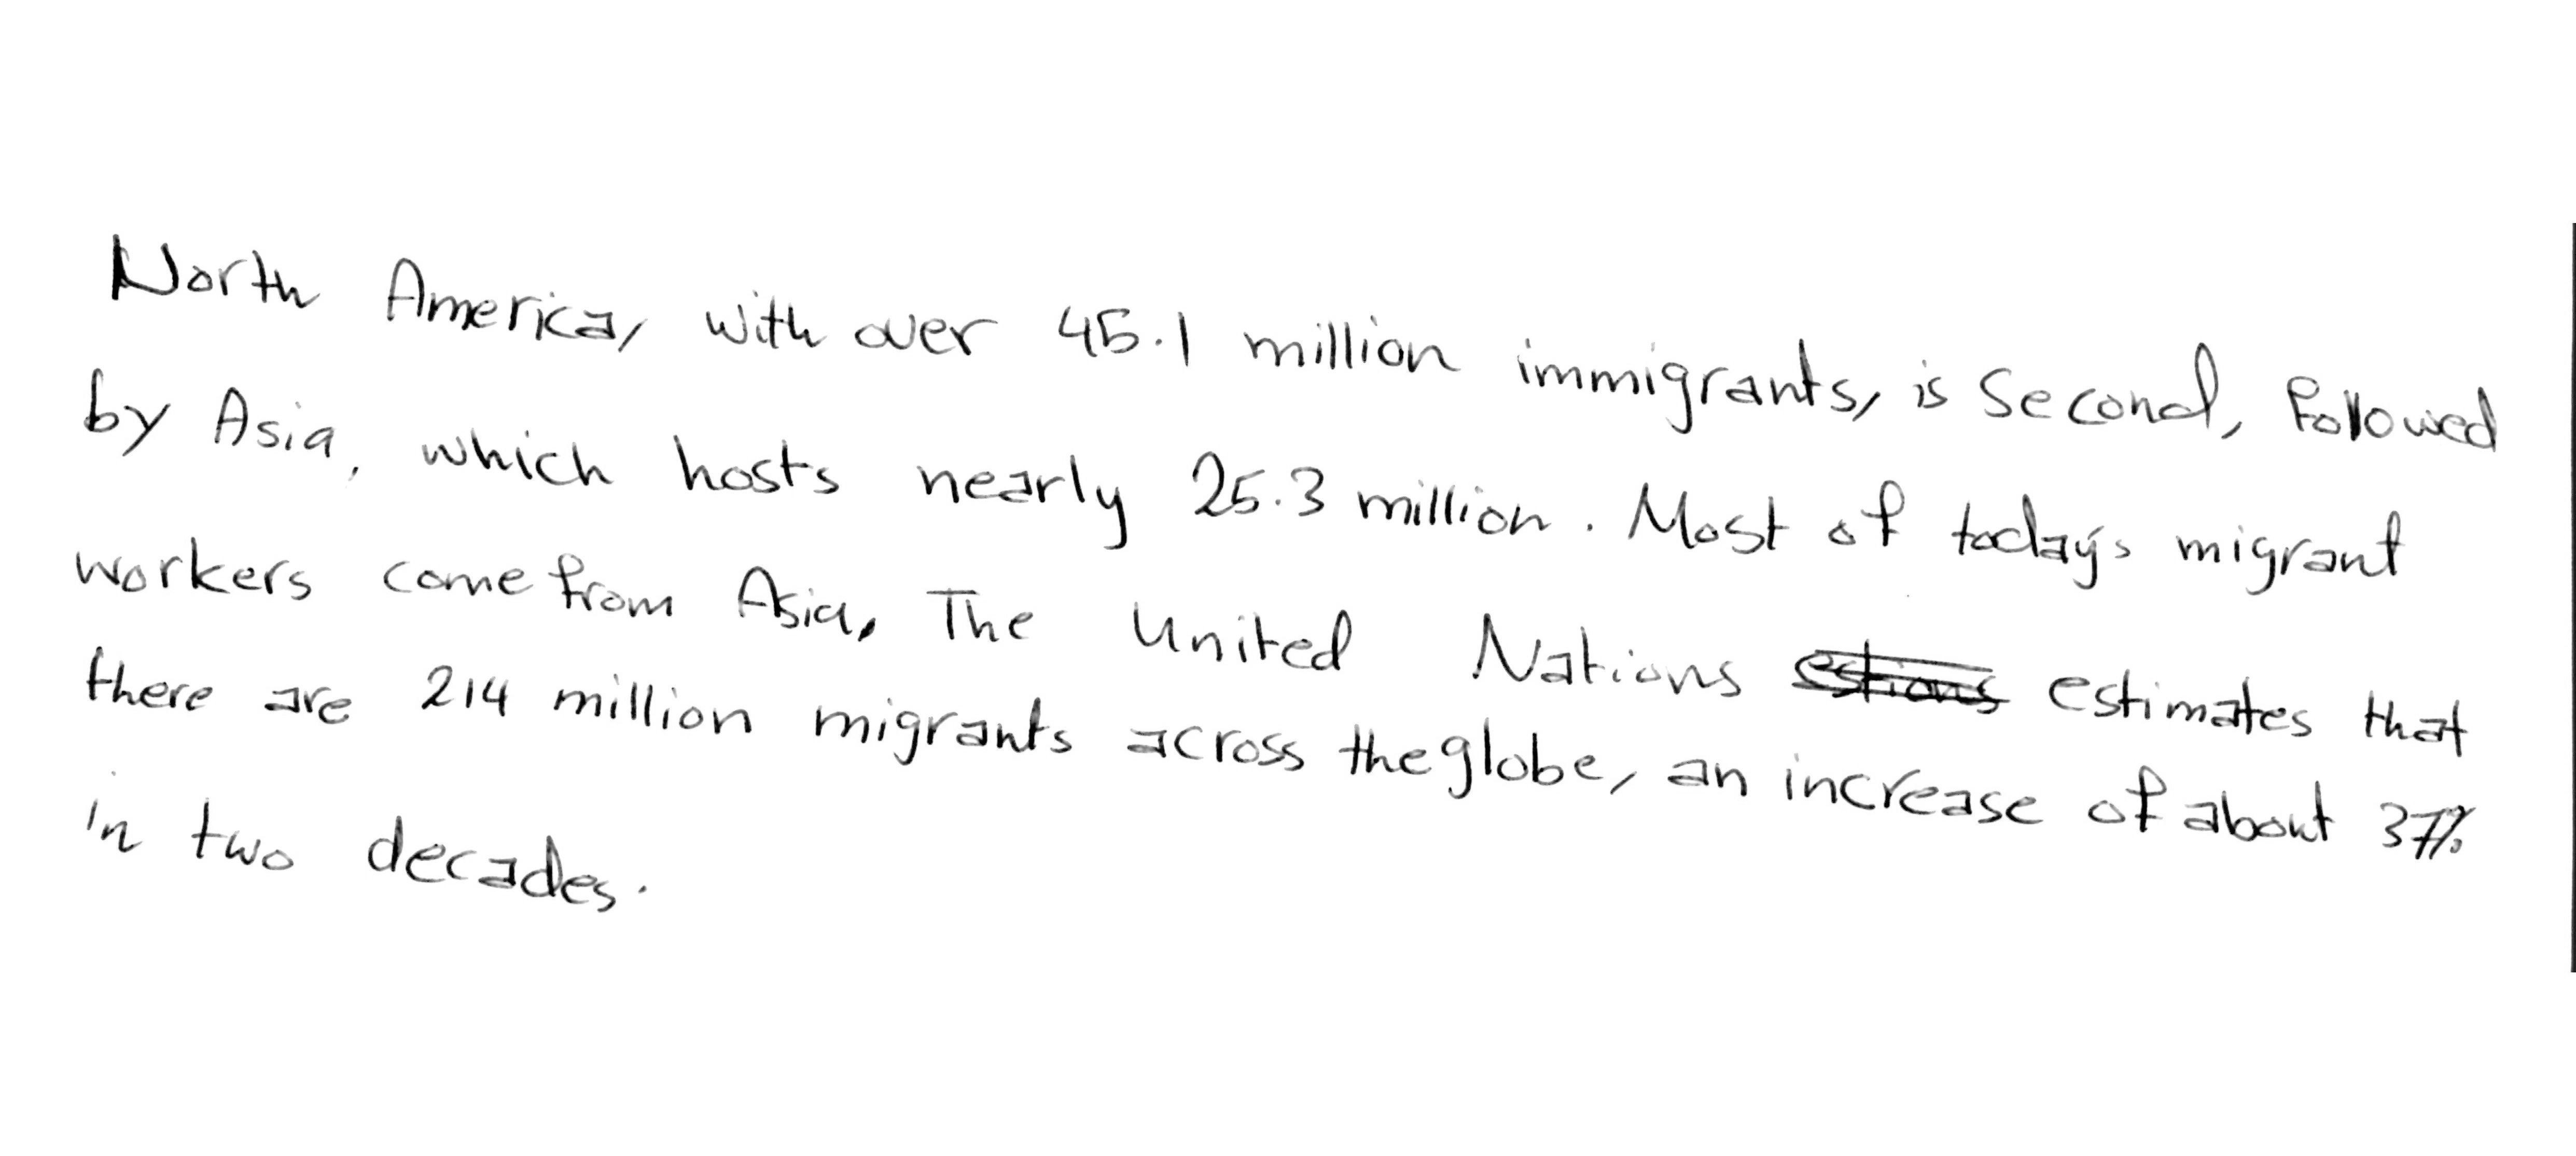 North America, with over 45.1 million immigrants, is Second, followed
by Asia, which hosts nearly 25.3 million. Most of today's migrant
workers come from Asia. The United Nations estimates that
there are 214 million migrants across the globe, an increase of about 37%
in two decades.